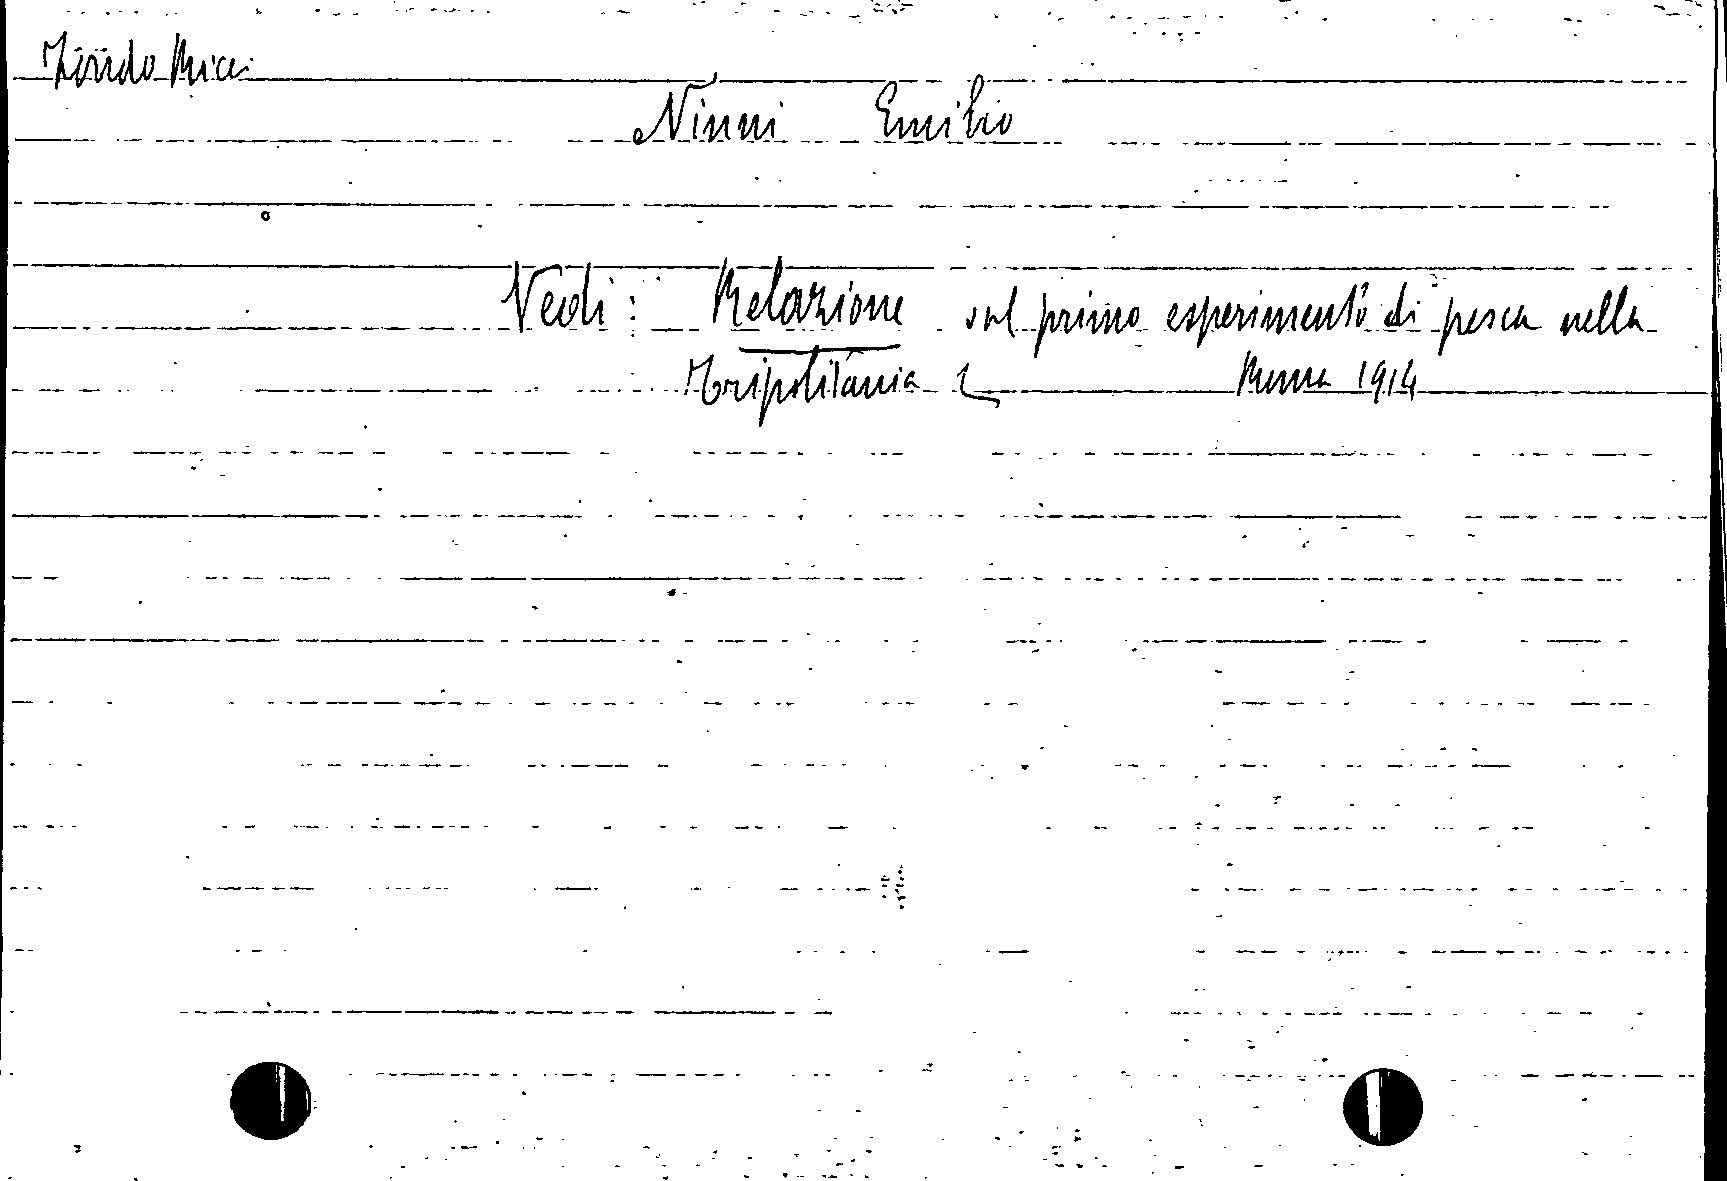 Fondo Ricci
Ninni Emilio
Vedi: Relazione sul primo esperimento di pesca nella
Tripolitania Roma 1914